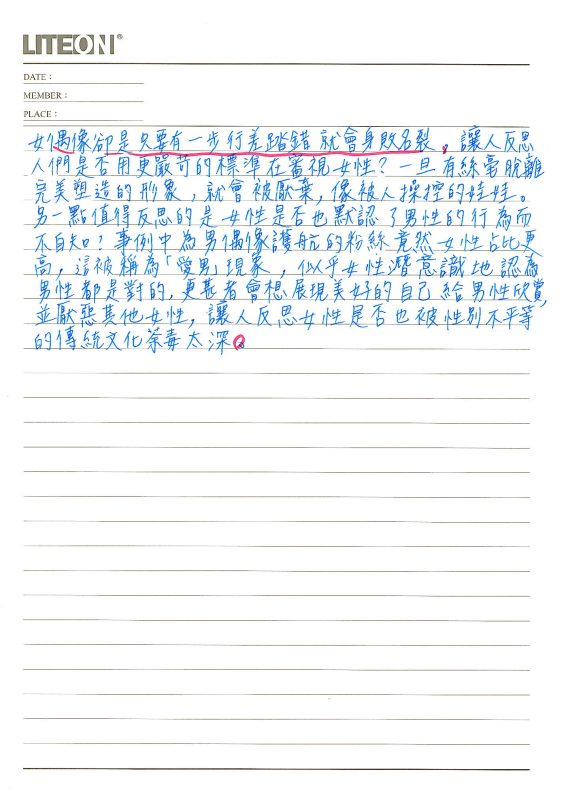 LITEON®
DATE：
MEMBER：
PLACE：
女偶像卻是只要有一步行差踏錯就會身敗名裂，讓人反思
人們是否用更嚴苛的標準在審視女性？一旦有絲毫脫離
完美塑造的形象，就會被厭棄，像被人操控的娃娃。
另一點值得反思的是女性是否也默認了男性的行為而
不自知？事例中為男偶像護航的粉絲竟然女性占比更
高，這被稱為「愛男」現象，似乎女性潛意識地認為
男性都是對的，更甚者會想展現美好的自己給男性欣賞，
並厭惡其他女性，讓人反思女性是否也被性別不平等
的傳統文化荼毒太深。